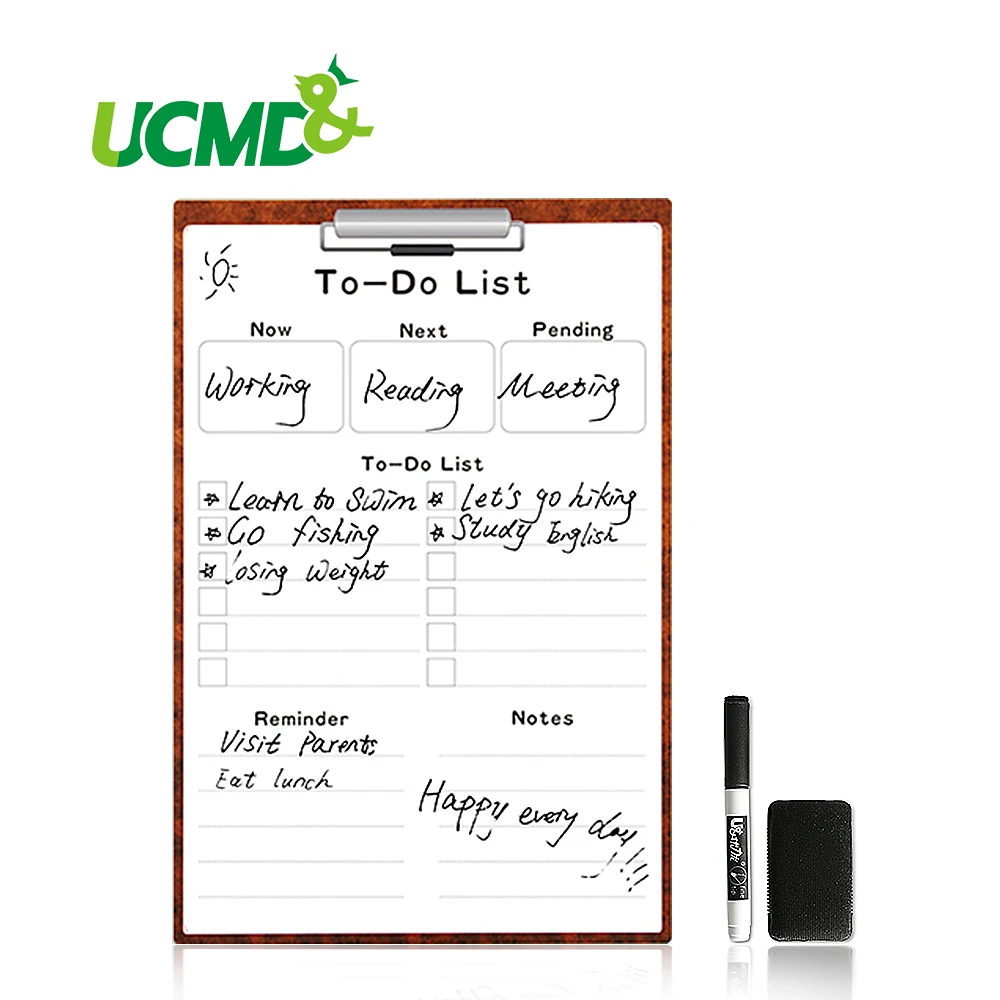 UCMD&
To-Do List
Now Next Pending
Working Reading Meeting
To-Do List
Learn to Swim Let's go hiking
Go fishing Study English
Losing weight
Reminder Notes
Visit Parents
Eat lunch
Happy every day!!!
fine